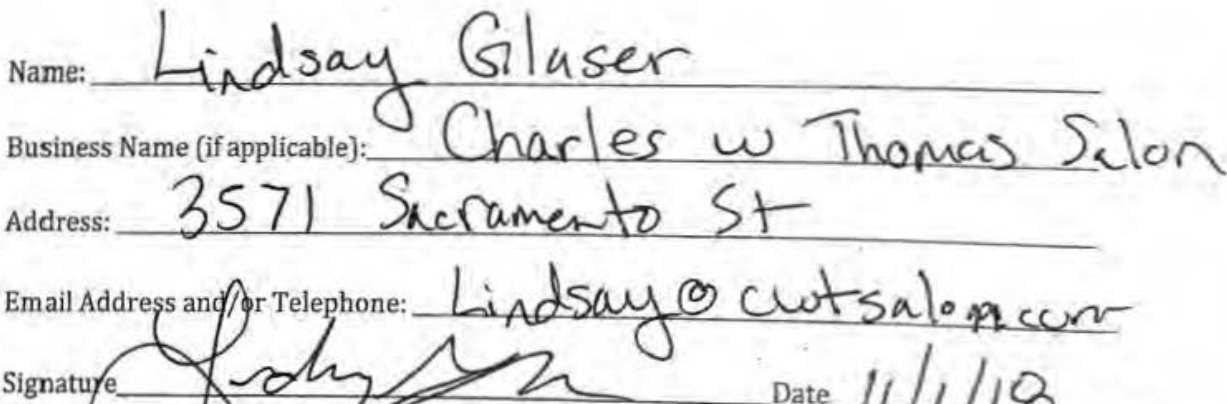 Name: Lindsay Glaser
Business Name (if applicable): Charles w Thomas Salon
Address: 3571 Sacramento St
Email Address and/or Telephone: Lindsay@cwtsalon.com
Signature Date 11/1/12